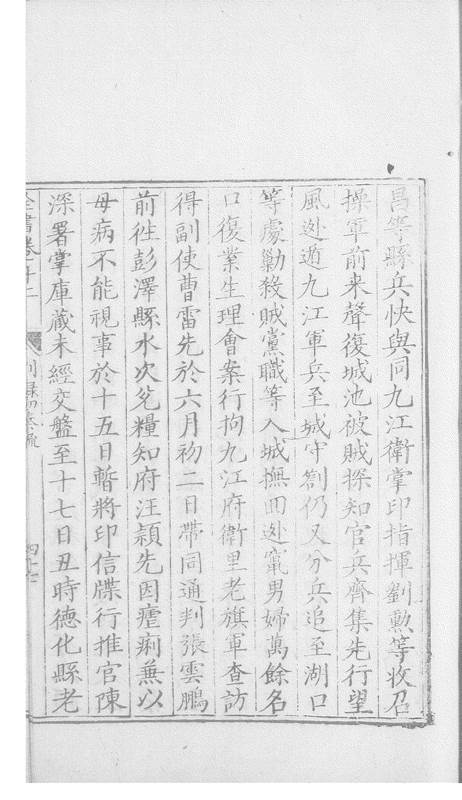 昌等縣兵快與同九江衛掌印指揮劉勲等收召
操軍前来聲復城池被賊探知官兵齊集先行望
風迯遁九江軍兵至城守劄仍又分兵追至湖口
等處勦殺賊黨職等入城撫回迯竄男婦萬餘名
口復業生理會案行拘九江府衛里老旗軍查訪
得副使曹雷先於六月初二日帶同通判張雲鵬
前徃彭澤縣水次兊糧知府汪頴先因瘧痢兼以
母病不能視事於十五日暫將印信牒行推官陳
深署掌庫藏未經交盤至十七日丑時德化縣老
全書卷十二 別録四奏疏